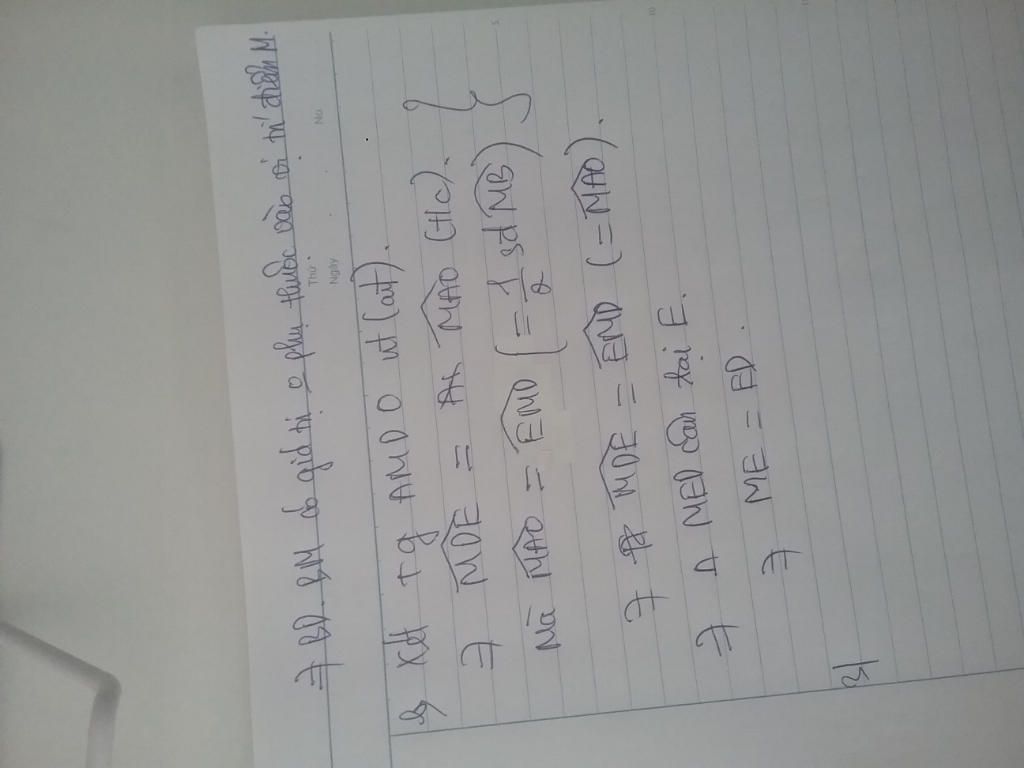 ⇒ BD. BM có giá trị o phụ thuộc vào vị trí điểm M.
Thứ
Ngày No
Xét tg AMDO nt (cmt).
⇒ MDE = MAO (Hc).
Mà MAO = EMD (= 1/2 sđ MB) }
⇒ MDE = EMD (= MAO).
⇒ Δ MED cân tại E.
⇒ ME = ED.